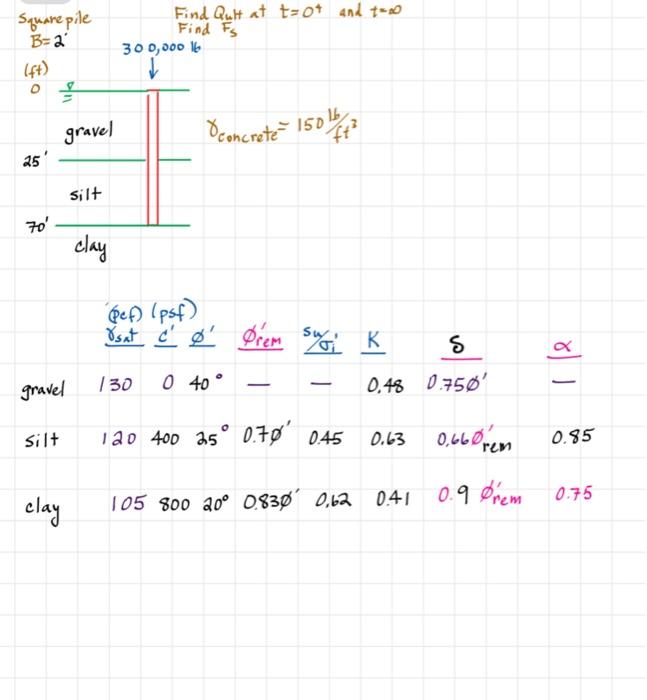 Square pile
B=2'
Find Qult at t=0+ and t=∞
Find Fs
300,000 lb
(ft)
0
gravel
γconcrete = 150 lb/ft³
25'
silt
70'
clay
(pcf) (psf)
γsat c' φ' φ'rem Su/σ'i K δ α
gravel 130 0 40° — — 0.48 0.75φ' —
silt 120 400 25° 0.7φ' 0.45 0.63 0.66φ'rem 0.85
clay 105 800 20° 0.83φ' 0.62 0.41 0.9 φ'rem 0.75